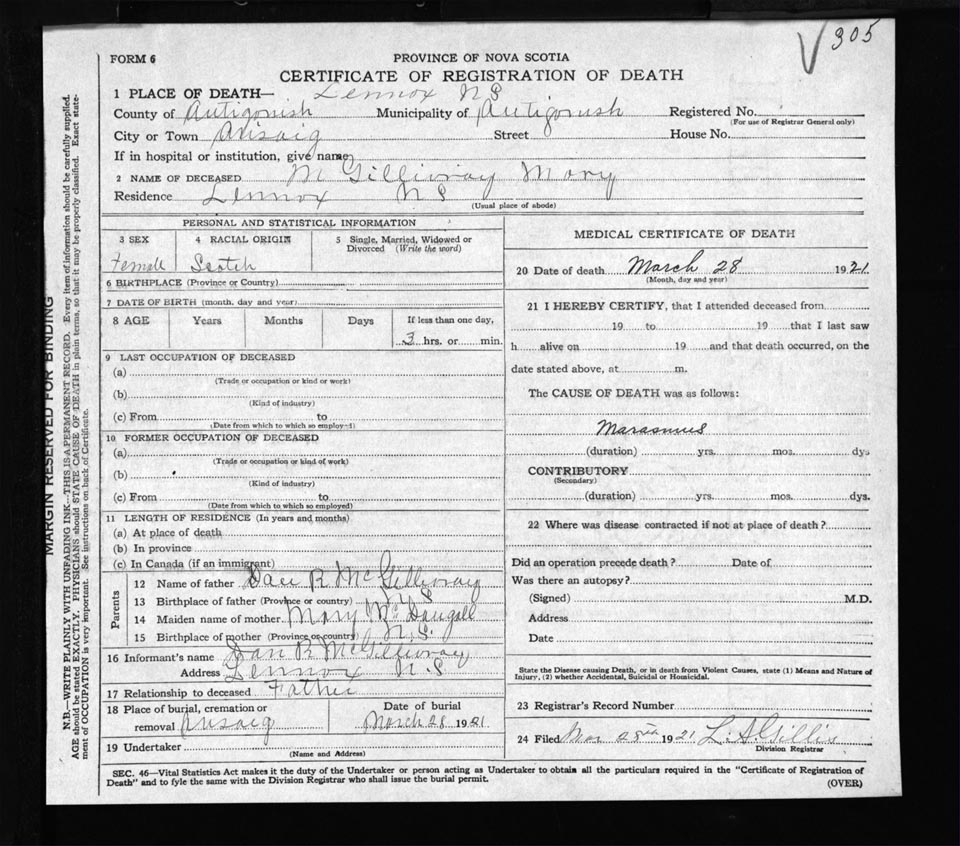 305
FORM 6
PROVINCE OF NOVA SCOTIA
CERTIFICATE OF REGISTRATION OF DEATH
1 PLACE OF DEATH— Lennox N S
County of Antigonish Municipality of Antigonish Registered No.
(For use of Registrar General only)
City or Town Arisaig Street House No.
If in hospital or institution, give name
2 NAME OF DECEASED McGillivray Mary
Residence Lennox N S
(Usual place of abode)
PERSONAL AND STATISTICAL INFORMATION
3 SEX 4 RACIAL ORIGIN 5 Single, Married, Widowed or
Divorced (Write the word)
Female Scotch
6 BIRTHPLACE (Province or Country)
7 DATE OF BIRTH (month, day and year)
8 AGE Years Months Days If less than one day,
3 hrs. or min.
9 LAST OCCUPATION OF DECEASED
(a)
(Trade or occupation or kind or work)
(b)
(Kind of industry)
(c) From to
(Date from which to which so employed)
10 FORMER OCCUPATION OF DECEASED
(a)
(Trade or occupation or kind of work)
(b)
(Kind of industry)
(c) From to
(Date from which to which so employed)
11 LENGTH OF RESIDENCE (In years and months)
(a) At place of death
(b) In province
(c) In Canada (if an immigrant)
Parents
12 Name of father Dan R McGillivray
13 Birthplace of father (Province or country) N S
14 Maiden name of mother Mary McDougall
15 Birthplace of mother (Province or country) N.S.
16 Informant's name Dan R McGillivray
Address Lennox N.S
17 Relationship to deceased Father
18 Place of burial, cremation or Date of burial
removal Arisaig March 28 1921
19 Undertaker
(Name and Address)
MEDICAL CERTIFICATE OF DEATH
20 Date of death March 28 1921
(Month, day and year)
21 I HEREBY CERTIFY, that I attended deceased from
19 to 19 that I last saw
h alive on 19 and that death occurred, on the
date stated above, at m.
The CAUSE OF DEATH was as follows:
Marasmus
(duration) yrs. mos. dys
CONTRIBUTORY
(Secondary)
(duration) yrs. mos. dys.
22 Where was disease contracted if not at place of death?
Did an operation precede death? Date of
Was there an autopsy?
(Signed) M.D.
Address
Date
State the Disease causing Death, or in death from Violent Causes, state (1) Means and Nature of
Injury, (2) whether Accidental, Suicidal or Homicidal.
23 Registrar's Record Number
24 Filed Mar 28th 1921 L. A. Gillis
Division Registrar
SEC. 46—Vital Statistics Act makes it the duty of the Undertaker or person acting as Undertaker to obtain all the particulars required in the "Certificate of Registration of
Death" and to fyle the same with the Division Registrar who shall issue the burial permit.
(OVER)
MARGIN RESERVED FOR BINDING
N.B.—WRITE PLAINLY WITH UNFADING INK—THIS IS A PERMANENT RECORD. Every item of information should be carefully supplied.
AGE should be stated EXACTLY. PHYSICIANS should STATE CAUSE OF DEATH in plain terms, so that it may be properly classified. Exact state-
ment of OCCUPATION is very important. See instructions on back of Certificate.